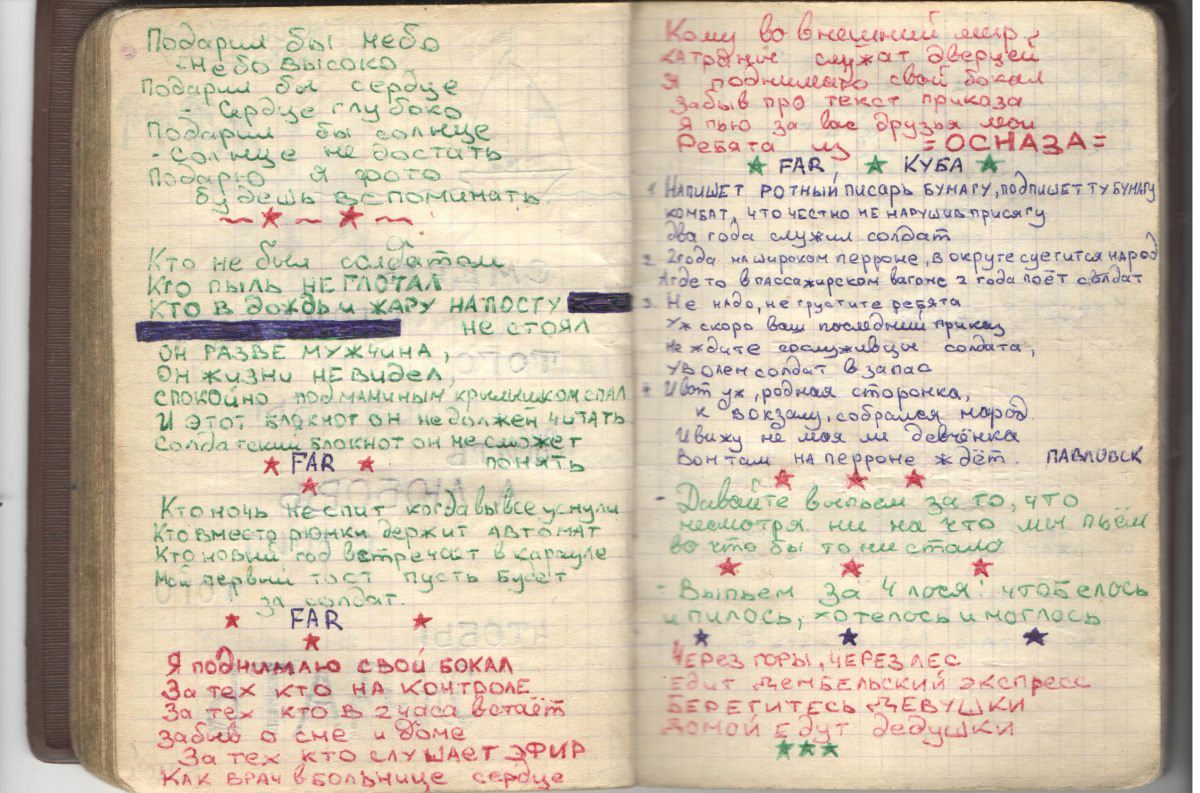 Подарил бы небо
- небо высоко
Подарил бы сердце
- Сердце глубоко
Подарил бы солнце
- Солнце не достать
Подарю я фото
будешь вспоминать.
Кто не был солдатом
Кто пыль НЕ ГЛОТАЛ
КТО В ДОЖДЬ И ЖАРУ НА ПОСТУ
НЕ СТОЯЛ
ОН РАЗВЕ МУЖЧИНА,
ОН ЖИЗНИ НЕ ВИДЕЛ,
СПОКОЙНО ПОД МАМИНЫМ КРЫЛЫШКОМ СПАЛ
И ЭТОТ БЛОКНОТ ОН НЕ ДОЛЖЕН ЧИТАТЬ
СОЛДАТСКИЙ БЛОКНОТ ОН НЕ СМОЖЕТ
ПОНЯТЬ
FAR
Кто ночь не спит когда вы все уснули
Кто вместо рюмки держит АВТОМАТ
Кто новый год встречает в карауле
Мой первый тост пусть будет
за солдат.
FAR
Я ПОДНИМАЮ СВОЙ БОКАЛ
За тех кто на контроле
За тех кто в 2 часа встаёт
Забыв о сне и доме
За тех кто слушает ЭФИР
Как врач в больнице сердце
Кому во внешний мир
служат дверцей
Я поднимаю свой бокал
Забыв про текст приказа
Я пью за вас друзья мои
Ребята из =ОСНАЗА=
FAR, КУБА
1. НАПИШЕТ РОТНЫЙ ПИСАРЬ БУМАГУ, ПОДПИШЕТ ТУ БУМАГУ
КОМБАТ, ЧТО ЧЕСТНО НЕ НАРУШИВ ПРИСЯГУ
два года служил солдат
2. 2 года на широком перроне, в округе суетится народ
А где то в пассажирском вагоне 2 года поёт солдат
3. Не надо, не грустите ребята
Уж скоро ваш последний приказ
Не ждите сослуживцы солдата,
Уволен солдат в запас
4. И вот уж, родная сторонка,
К вокзалу, собрался народ
И вижу не моя ли девчёнка
Вон там на перроне ждёт. ПАВЛОВСК
- Давайте выпьем за то, что
несмотря ни на что мы пьём
во что бы то ни стало
- Выпьем за 4 лося: чтоб елось
и пилось, хотелось и моглось
ЧЕРЕЗ ГОРЫ, ЧЕРЕЗ ЛЕС
ЕДИТ ДЕМБЕЛЬСКИЙ ЭКСПРЕСС
БЕРЕГИТЕСЬ ДЕВУШКИ
ДОМОЙ ЕДУТ ДЕДУШКИ